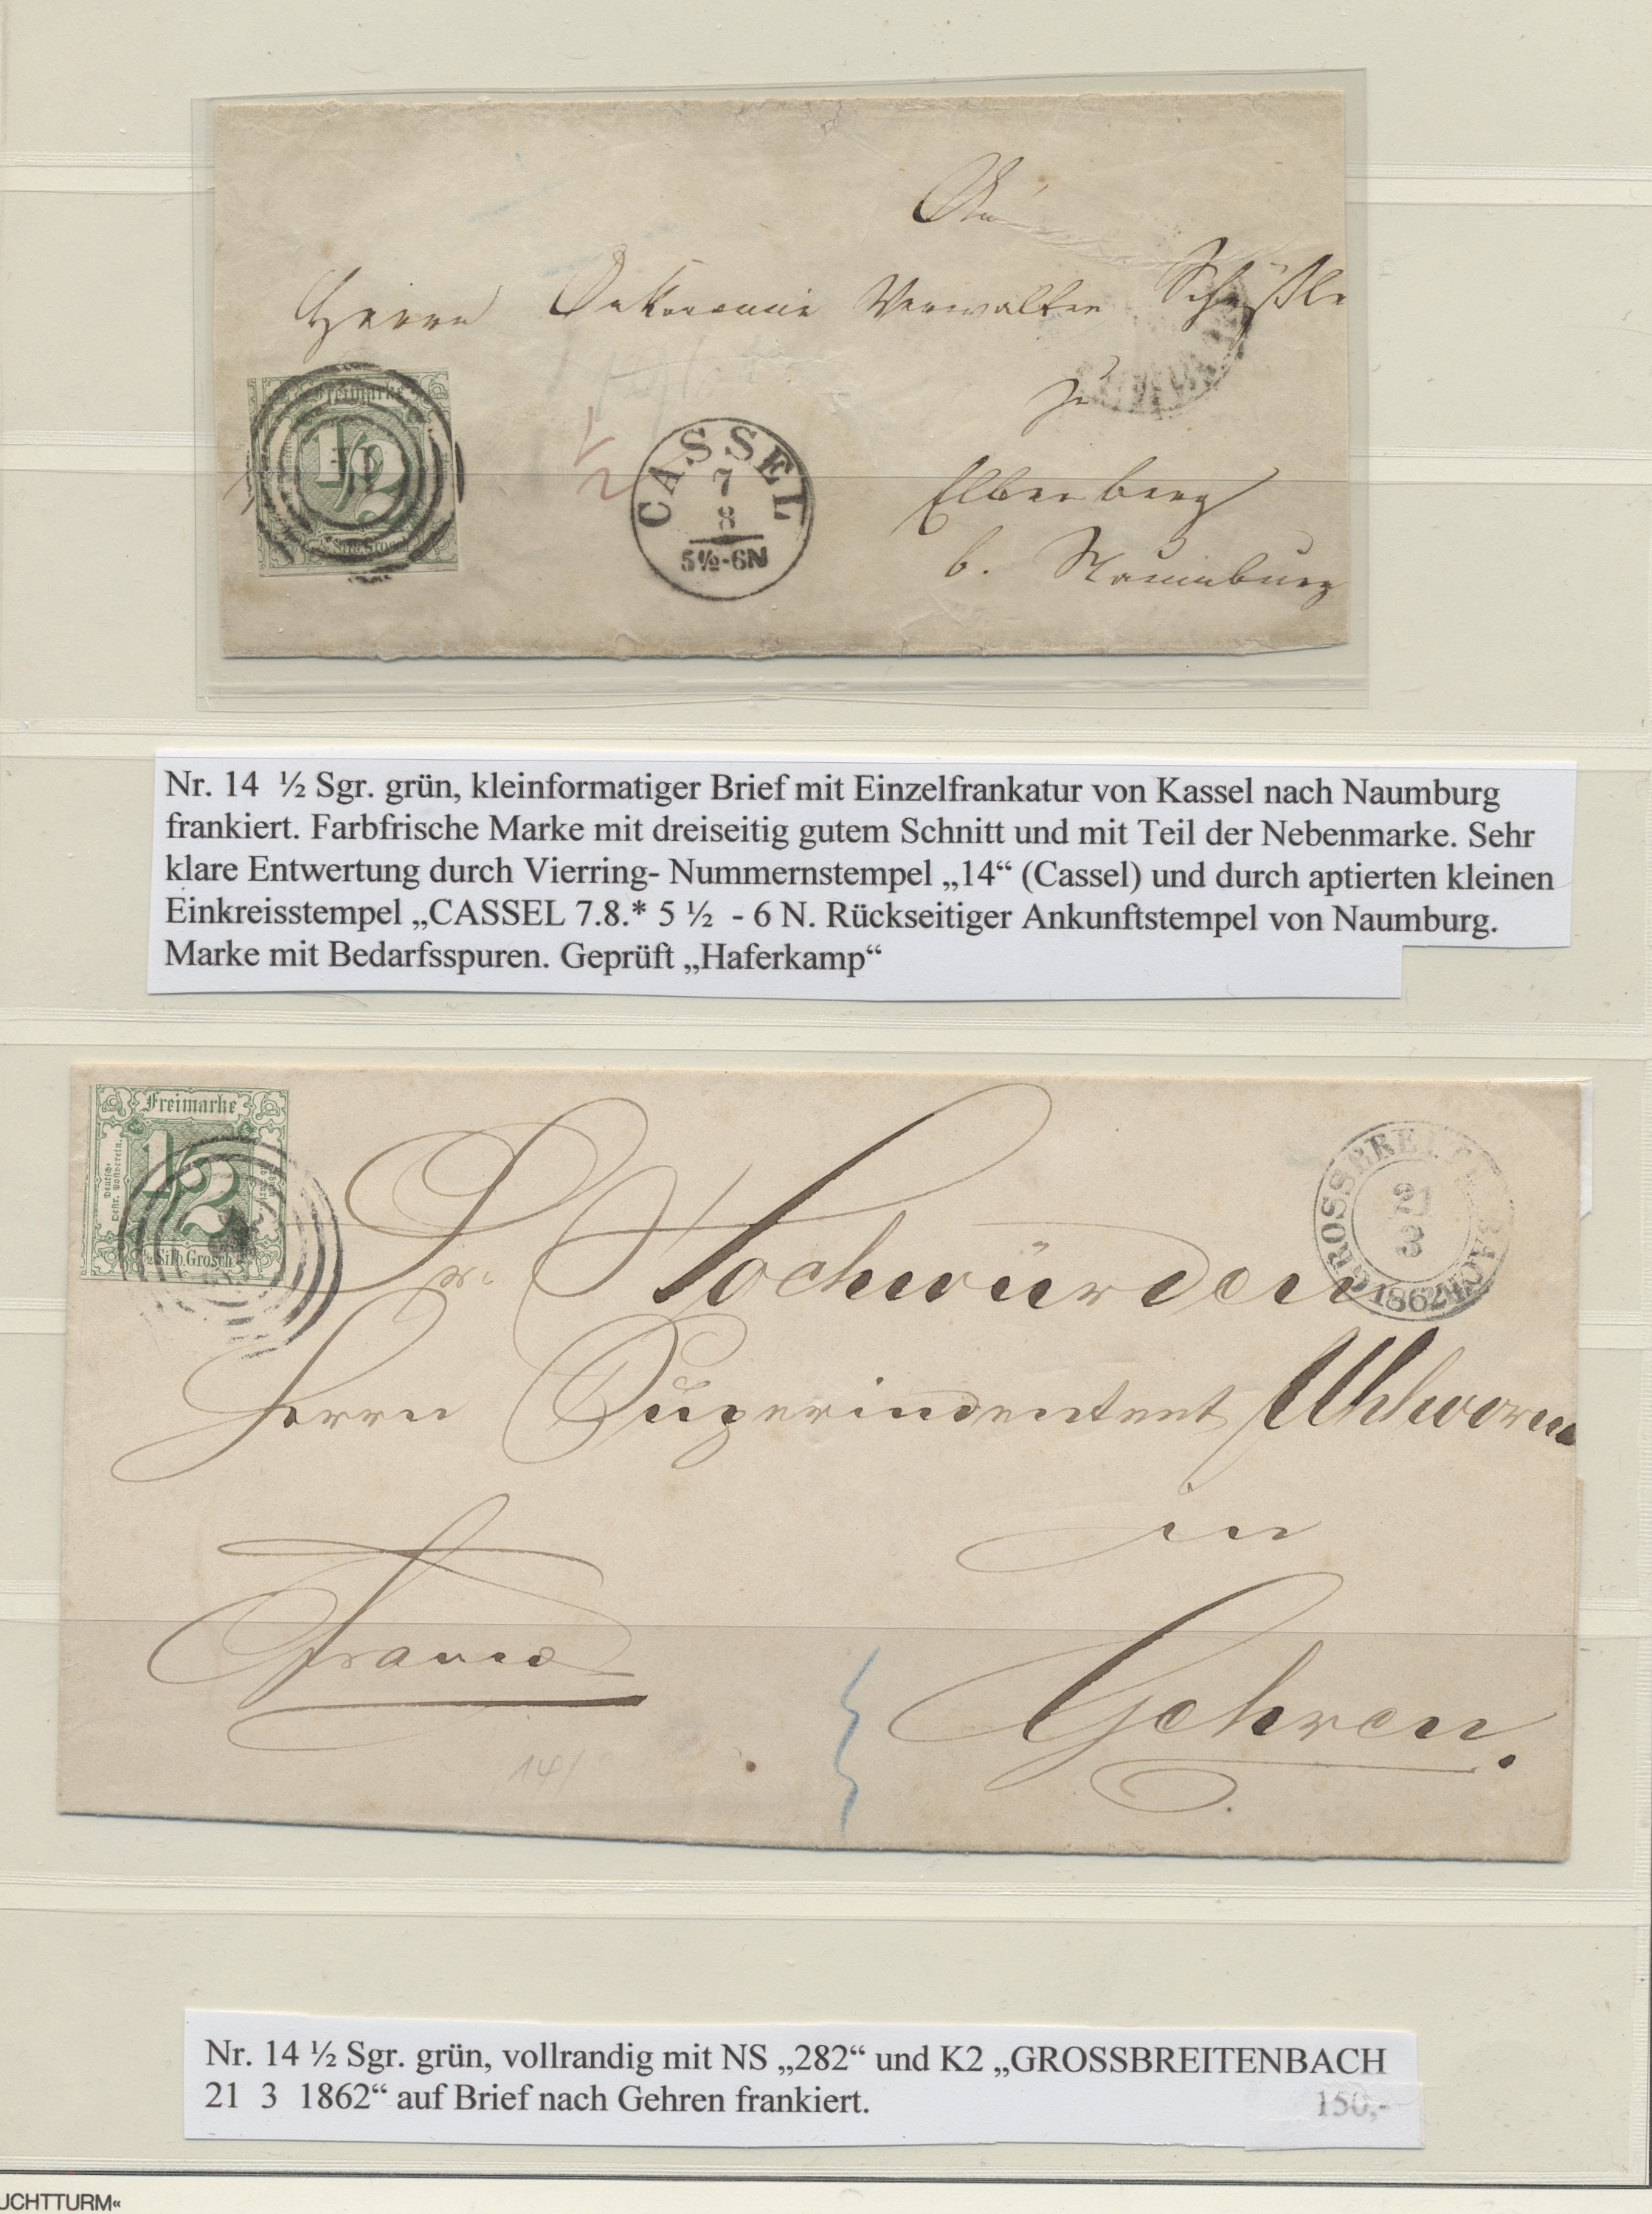 An
Herrn Oekonomie Verwalter
zu
Elberberg
b. Naumburg
Freimarke
1/2
½ Silb. Grosch.
1/2
CASSEL
7
8
5½-6N
Nr. 14 ½ Sgr. grün, kleinformatiger Brief mit Einzelfrankatur von Kassel nach Naumburg
frankiert. Farbfrische Marke mit dreiseitig gutem Schnitt und mit Teil der Nebenmarke. Sehr
klare Entwertung durch Vierring- Nummernstempel „14“ (Cassel) und durch aptierten kleinen
Einkreisstempel „CASSEL 7.8.* 5 ½ - 6 N. Rückseitiger Ankunftstempel von Naumburg.
Marke mit Bedarfsspuren. Geprüft „Haferkamp“
Freimarke
1/2
Deutsch-
Oestr. Postverein.
½ Silb. Grosch.
GROSSBREITENBACH
21
3
1862
Sr. Hochwürden
Herrn Superindentent Uhlworm
in
Franco
Gehren.
14/
Nr. 14 ½ Sgr. grün, vollrandig mit NS „282“ und K2 „GROSSBREITENBACH
21 3 1862“ auf Brief nach Gehren frankiert.
150,-
UCHTTURM«